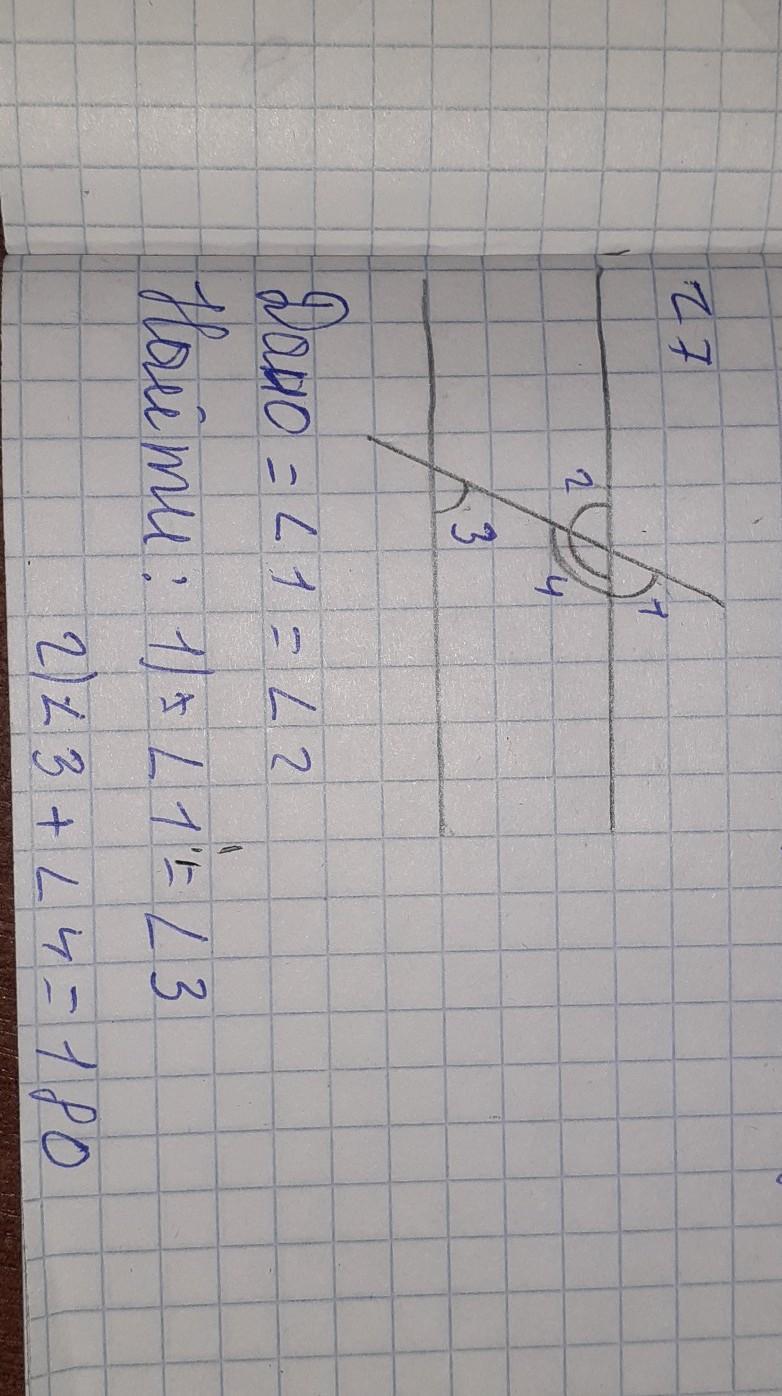 27
1
2
4
3
Дано = ∠1 = ∠2
Найти: 1) ∠1 = ∠3
2) ∠3 + ∠4 = 180